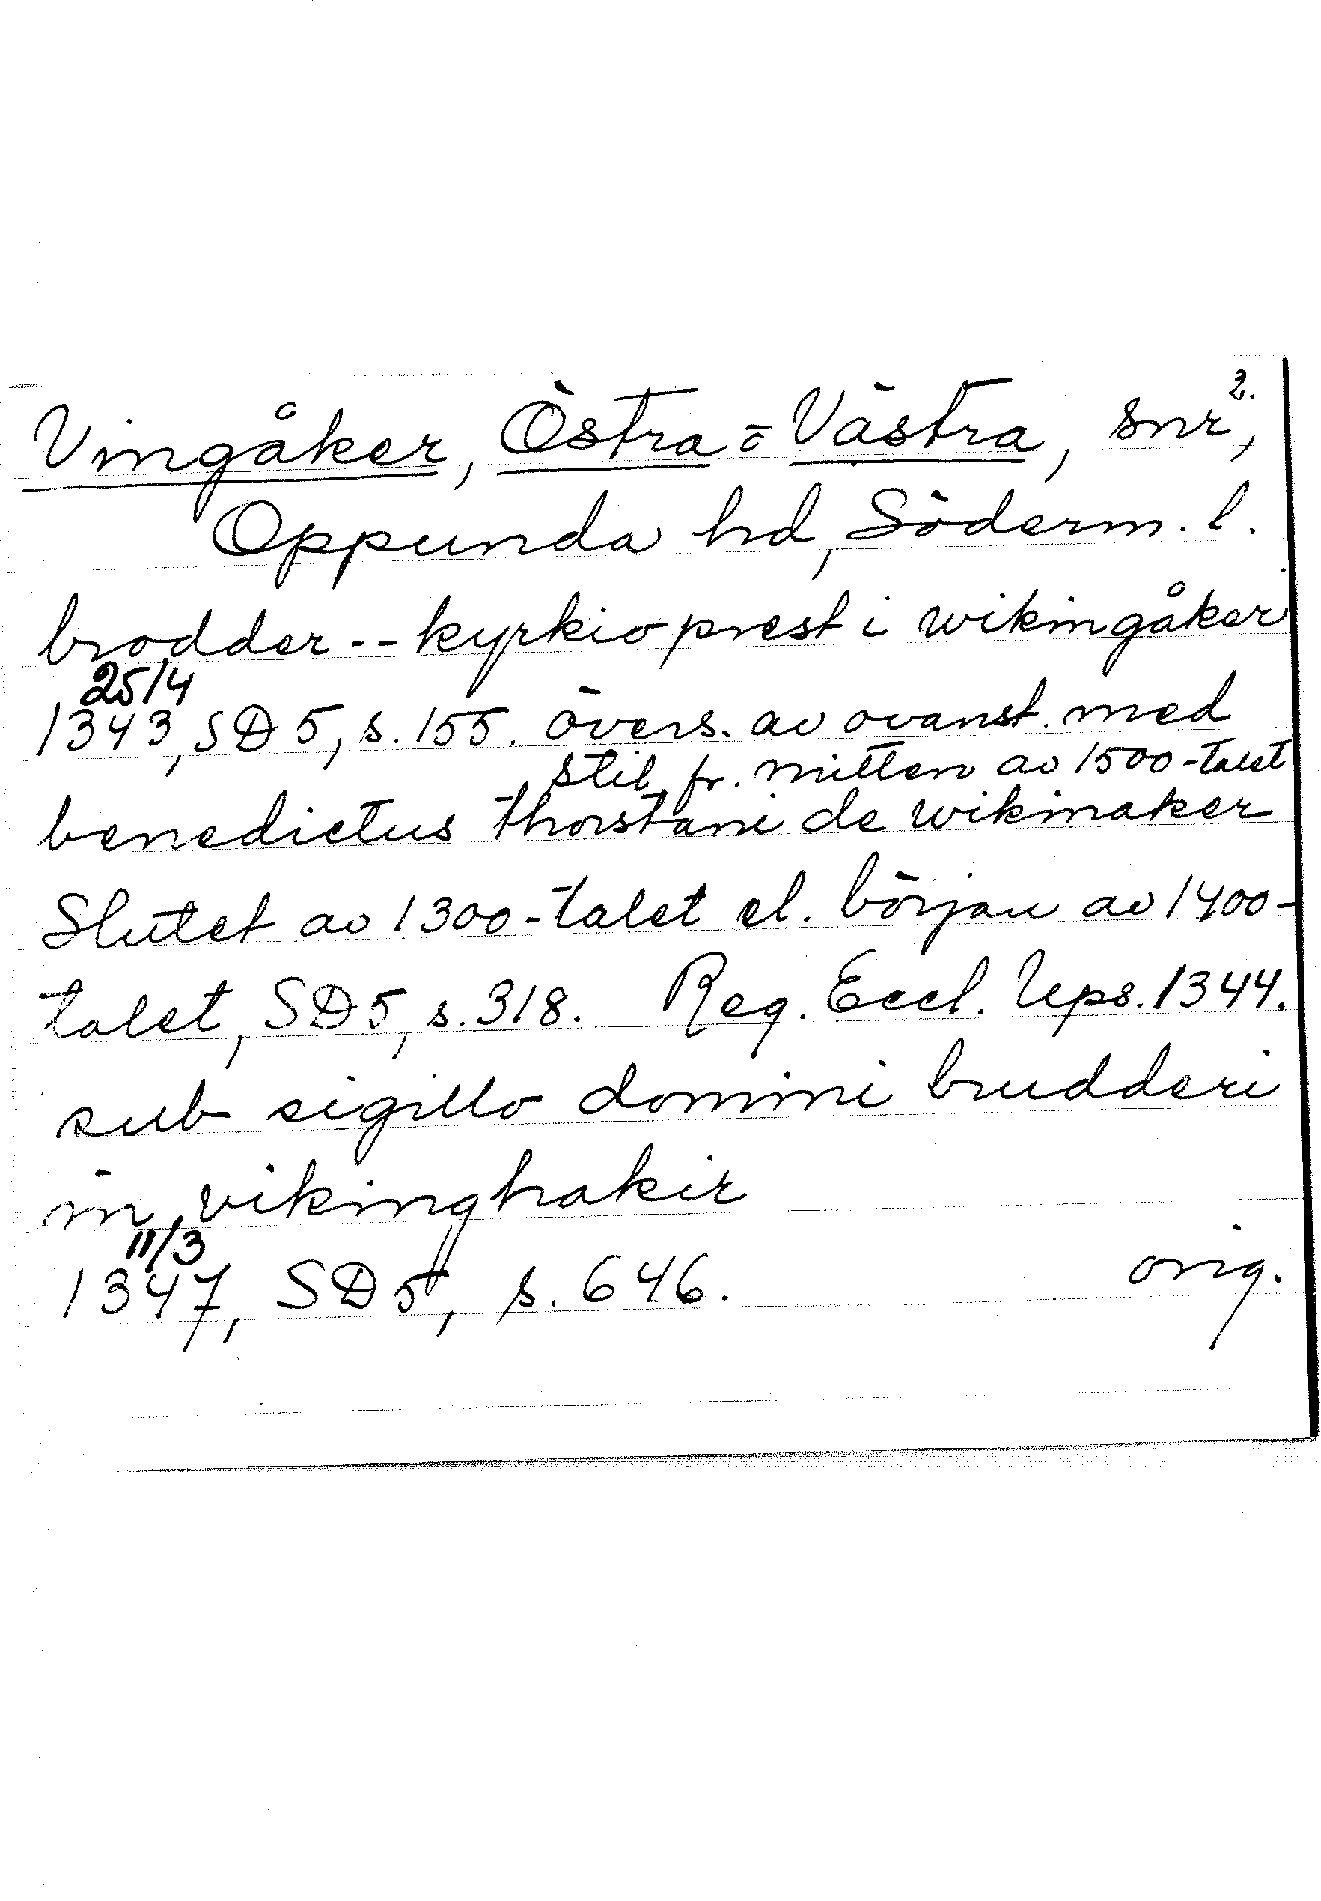 2.
Vingåker, Östra o Västra, snr,
Oppunda hd, Söderm. l.
brodder -- kyrkio prest i wikingåker
25/4
1343, SD 5, s. 155. övers. av ovanst. med
stil fr. mitten av 1500-talet
benedictus thorstani de wikinaker
Slutet av 1300-talet el. början av 1400-
talet, SD 5, s. 318. Reg. Eccl. Ups. 1344.
sub sigillo domini brudderi
in vikinghakir
11/3
1347, SD 5, s. 646. orig.